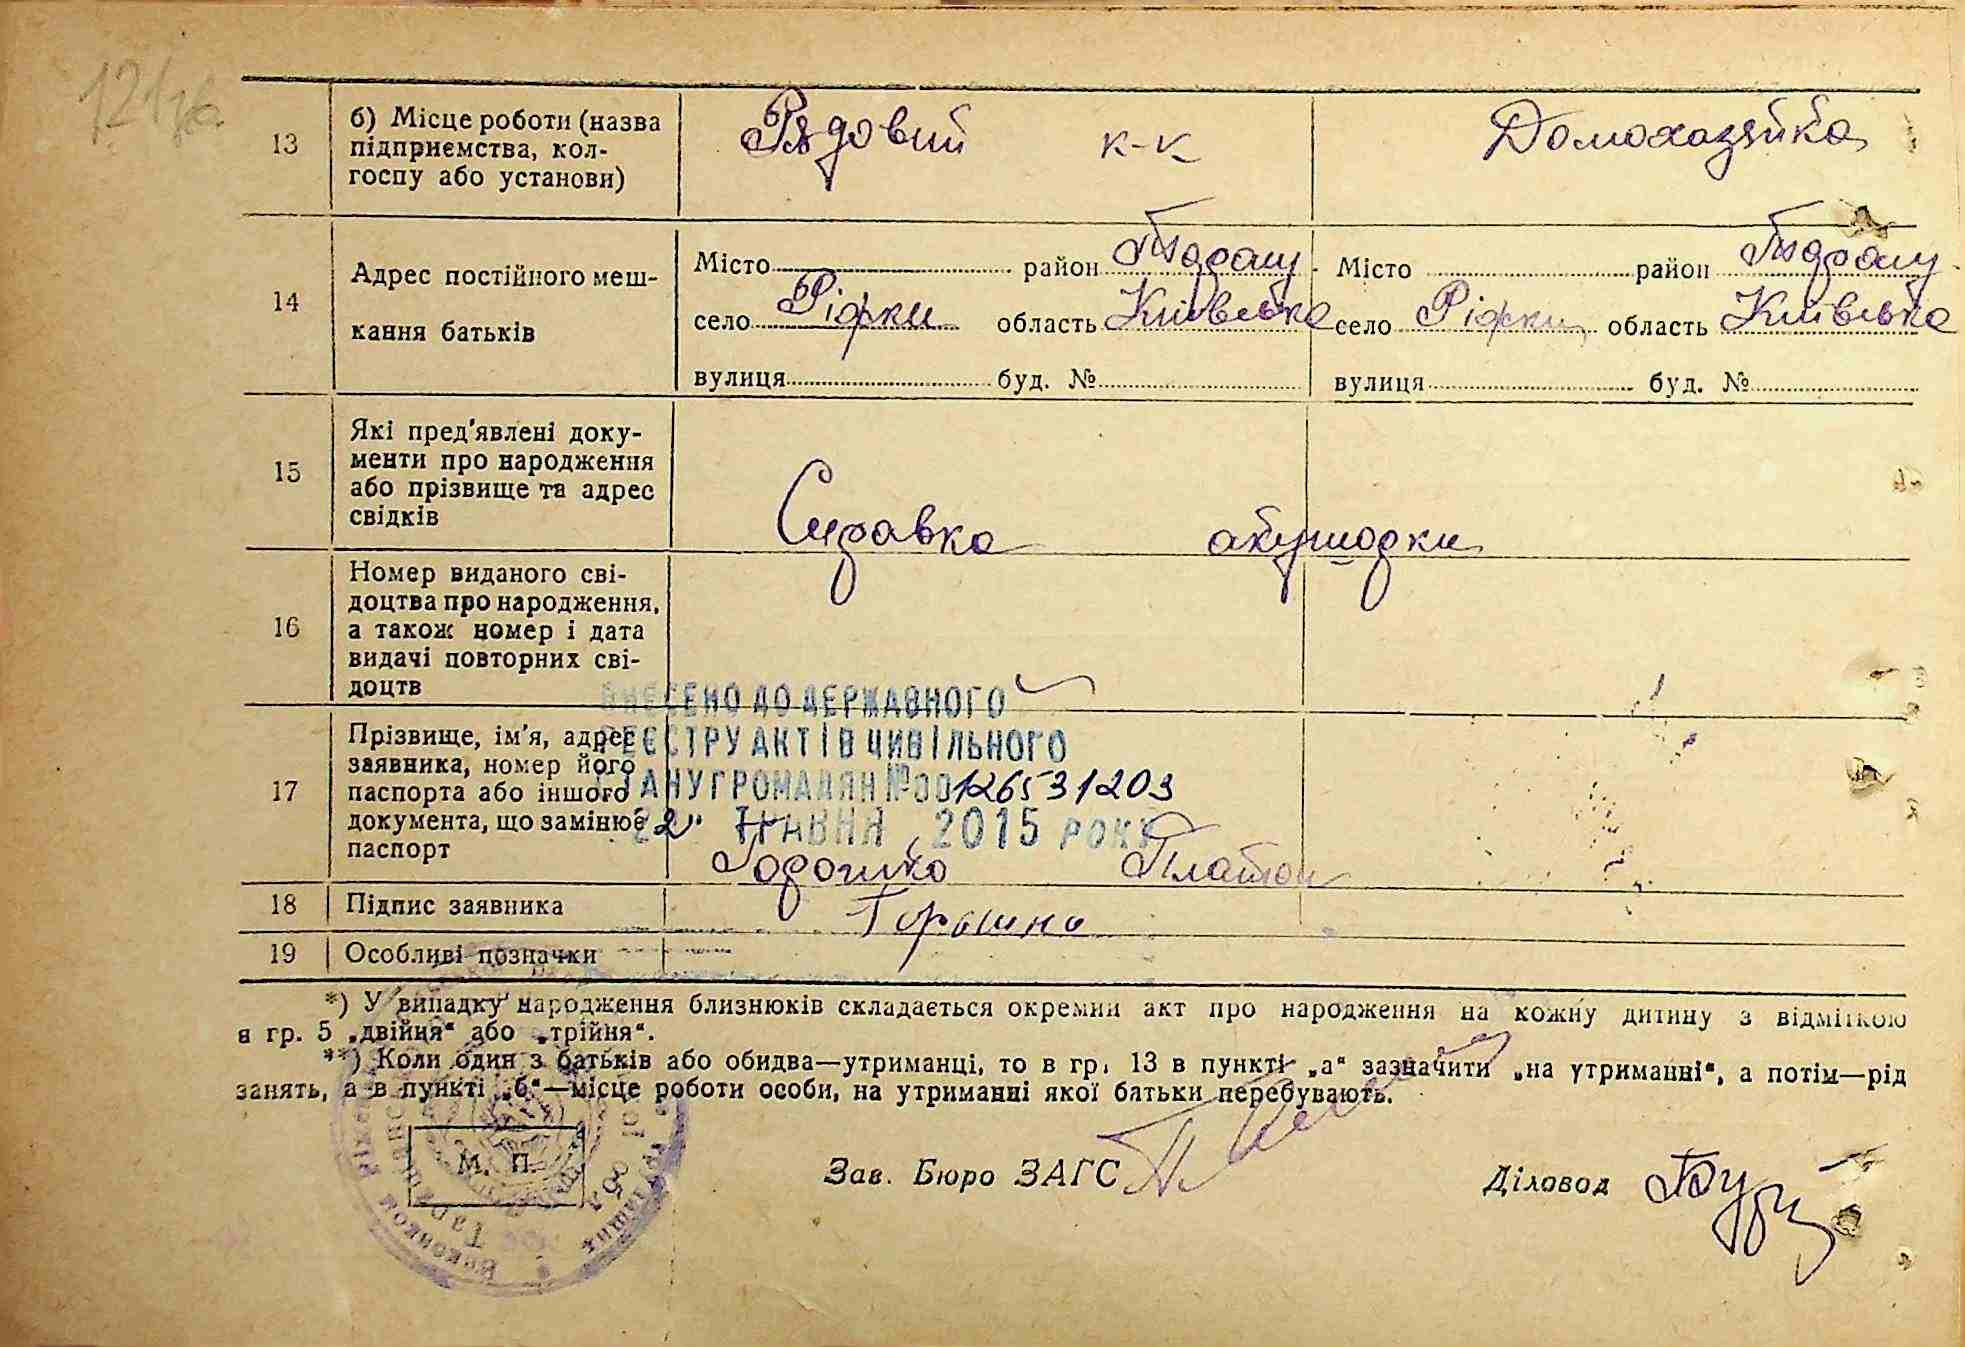 121зв.
13
б) Місце роботи (назва
підприємства, кол-
госпу або установи)
Рядовий к-к
Домохазяйка
14
Адрес постійного меш-
кання батьків
Місто район
село Ріжки область Київська
вулиця буд. №
Місто район
село Ріжки область Київська
вулиця буд. №
15
Які пред'явлені доку-
менти про народження
або прізвище та адрес
свідків
Справка акушорки
16
Номер виданого сві-
доцтва про народження,
а також номер і дата
видачі повторних сві-
доцтв
ВНЕСЕНО ДО ДЕРЖАВНОГО
РЕЄСТРУ АКТІВ ЦИВІЛЬНОГО
СТАНУ ГРОМАДЯН №00126531203
22 ТРАВНЯ 2015 РОКУ
17
Прізвище, ім'я, адрес
заявника, номер його
паспорта або іншого
документа, що замінює
паспорт
Платон
18
Підпис заявника
19
Особливі позначки
*) У випадку народження близнюків складається окремий акт про народження на кожну дитину з відміткою
в гр. 5 „двійня“ або „трійня“.
**) Коли один з батьків або обидва—утриманці, то в гр. 13 в пункті „а“ зазначити „на утриманні“, а потім—рід
занять, а в пункті „б“—місце роботи особи, на утриманні якої батьки перебувають.
М. П.
Зав. Бюро ЗАГС
Діловод